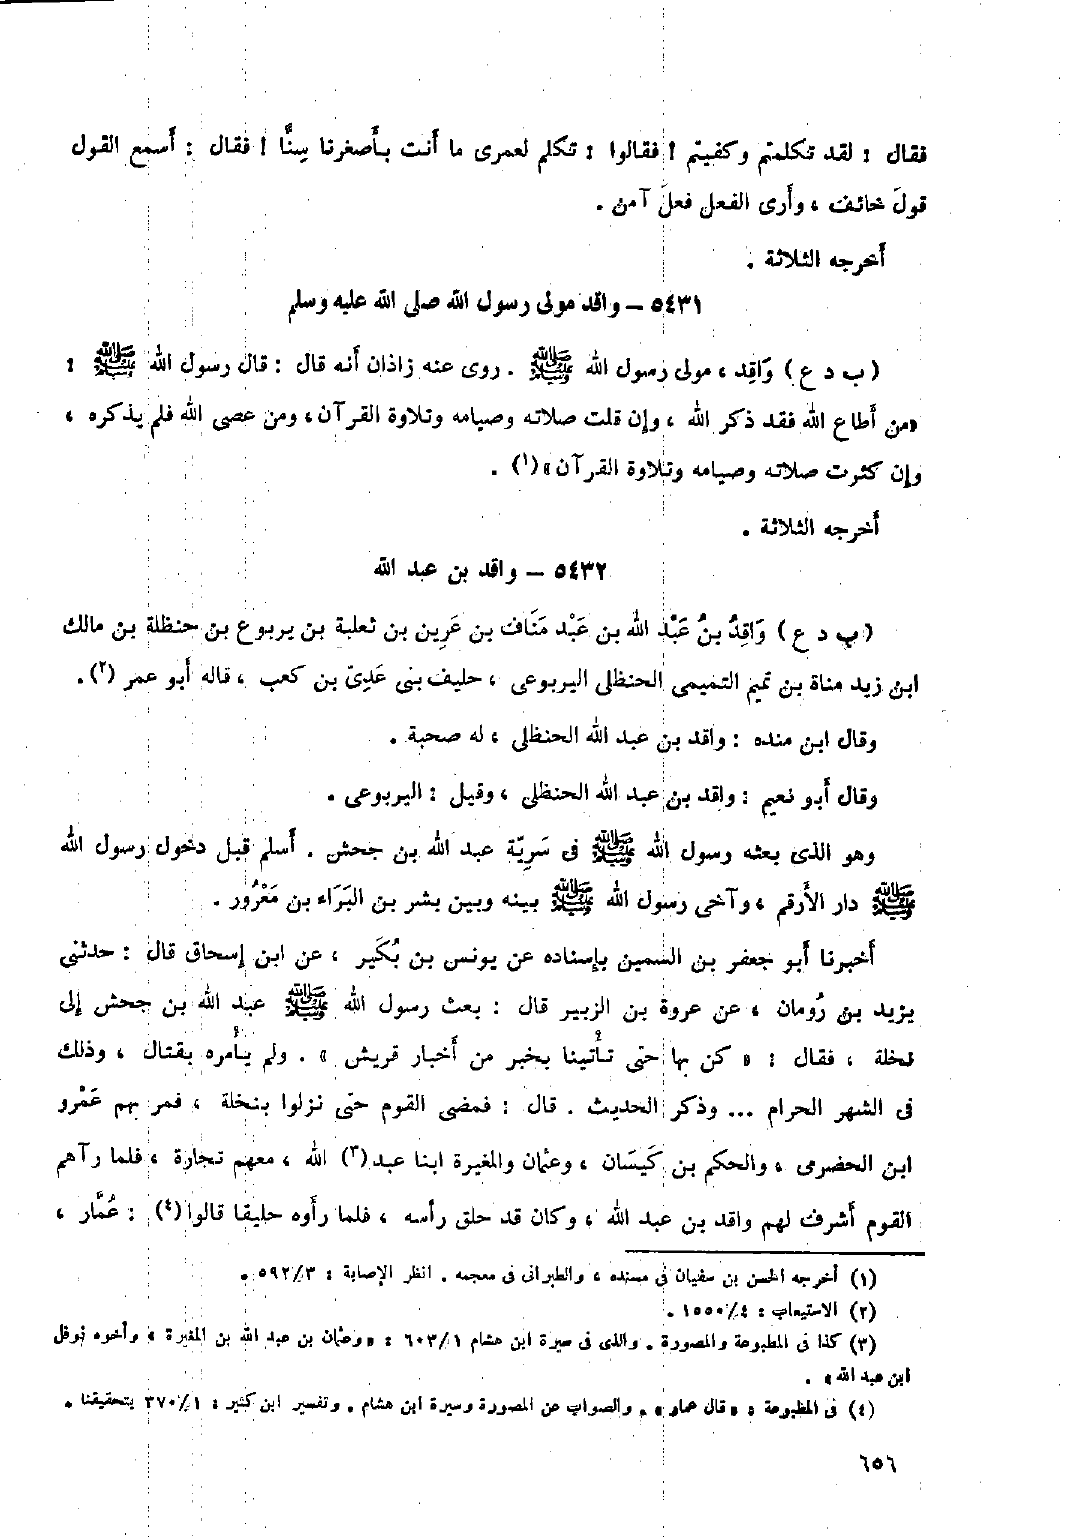 فقال : لقد تكلمتم وكفيتم ! فقالوا : تكلم لعمرى ما أَنت بأَصغرنا سِنًّا ! فقال : أَسمع القول
قولَ خائف ، وأَرى الفعل فعلَ آمن .
أَخرجه الثلاثة .
٥٤٣١ – واقد مولى رسول الله صلى الله عليه وسلم
( ب د ع ) وَاقِد ، مولى رسول الله ﷺ . روى عنه زاذان أَنه قال : قال رسول الله ﷺ :
«من أَطاع الله فقد ذكر الله ، وإن قلت صلاته وصيامه وتلاوة القرآن، ومن عصى الله فلم يذكره ،
وإن كثرت صلاته وصيامه وتلاوة القرآن»(١) .
أَخرجه الثلاثة .
٥٤٣٢ – واقد بن عبد الله
( ب د ع ) وَاقِدُ بنُ عَبْدِ الله بن عَبْد مَنَاف بن عَرِين بن ثعلبة بن يربوع بن حنظلة بن مالك
ابن زيد مناة بن تميم التميمى الحنظلى اليربوعى ، حليف بنى عَدِىّ بن كعب ، قاله أبو عمر (٢).
وقال ابن منده : واقد بن عبد الله الحنظلى ، له صحبة .
وقال أَبو نعيم : واقد بن عبد الله الحنظلى ، وقيل : اليربوعى .
وهو الذى بعثه رسول الله ﷺ فى سَرِيّة عبد الله بن جحش . أَسلم قبل دخول رسول الله
ﷺ دار الأَرقم ، وآخى رسول الله ﷺ بينه وبين بشر بن البَرَاء بن مَعْرُور .
أَخبرنا أَبو جعفر بن السمين بإسناده عن يونس بن بُكَير ، عن ابن إسحاق قال : حدثنى
يزيد بن رُومان ، عن عروة بن الزبير قال : بعث رسول الله ﷺ عبد الله بن جحش إلى
نخلة ، فقال : « كن بها حتى تأْتينا بخبر من أَخبار قريش » . ولم يأْمره بقتال ، وذلك
فى الشهر الحرام ... وذكر الحديث . قال : فمضى القوم حتى نزلوا بنخلة ، فمر بهم عَمْرو
ابن الحضرمى ، والحكم بن كَيسَان ، وعثمان والمغيرة ابنا عبد(٣) الله ، معهم تجارة ، فلما رآهم
القوم أَشرف لهم واقد بن عبد الله ، وكان قد حلق رأسه ، فلما رأَوه حليقا قالوا(٤) : عُمَّار ،
(١) أخرجه الحسن بن سفيان فى مسنده ، والطبرانى فى معجمه . انظر الإصابة : ٥٩٢/٣ .
(٢) الاستيعاب : ١٥٥٠/٤ .
(٣) كذا فى المطبوعة والمصورة . والذى فى سيرة ابن هشام ٦٠٣/١ : «وعثمان بن عبد الله بن المغيرة » وأخوه نوفل
ابن عبد الله » .
(٤) فى المطبوعة : «قال عمار » . والصواب عن المصورة وسيرة ابن هشام . وتفسير ابن كثير : ٣٧٠/١ بتحقيقنا .
٦٥٦